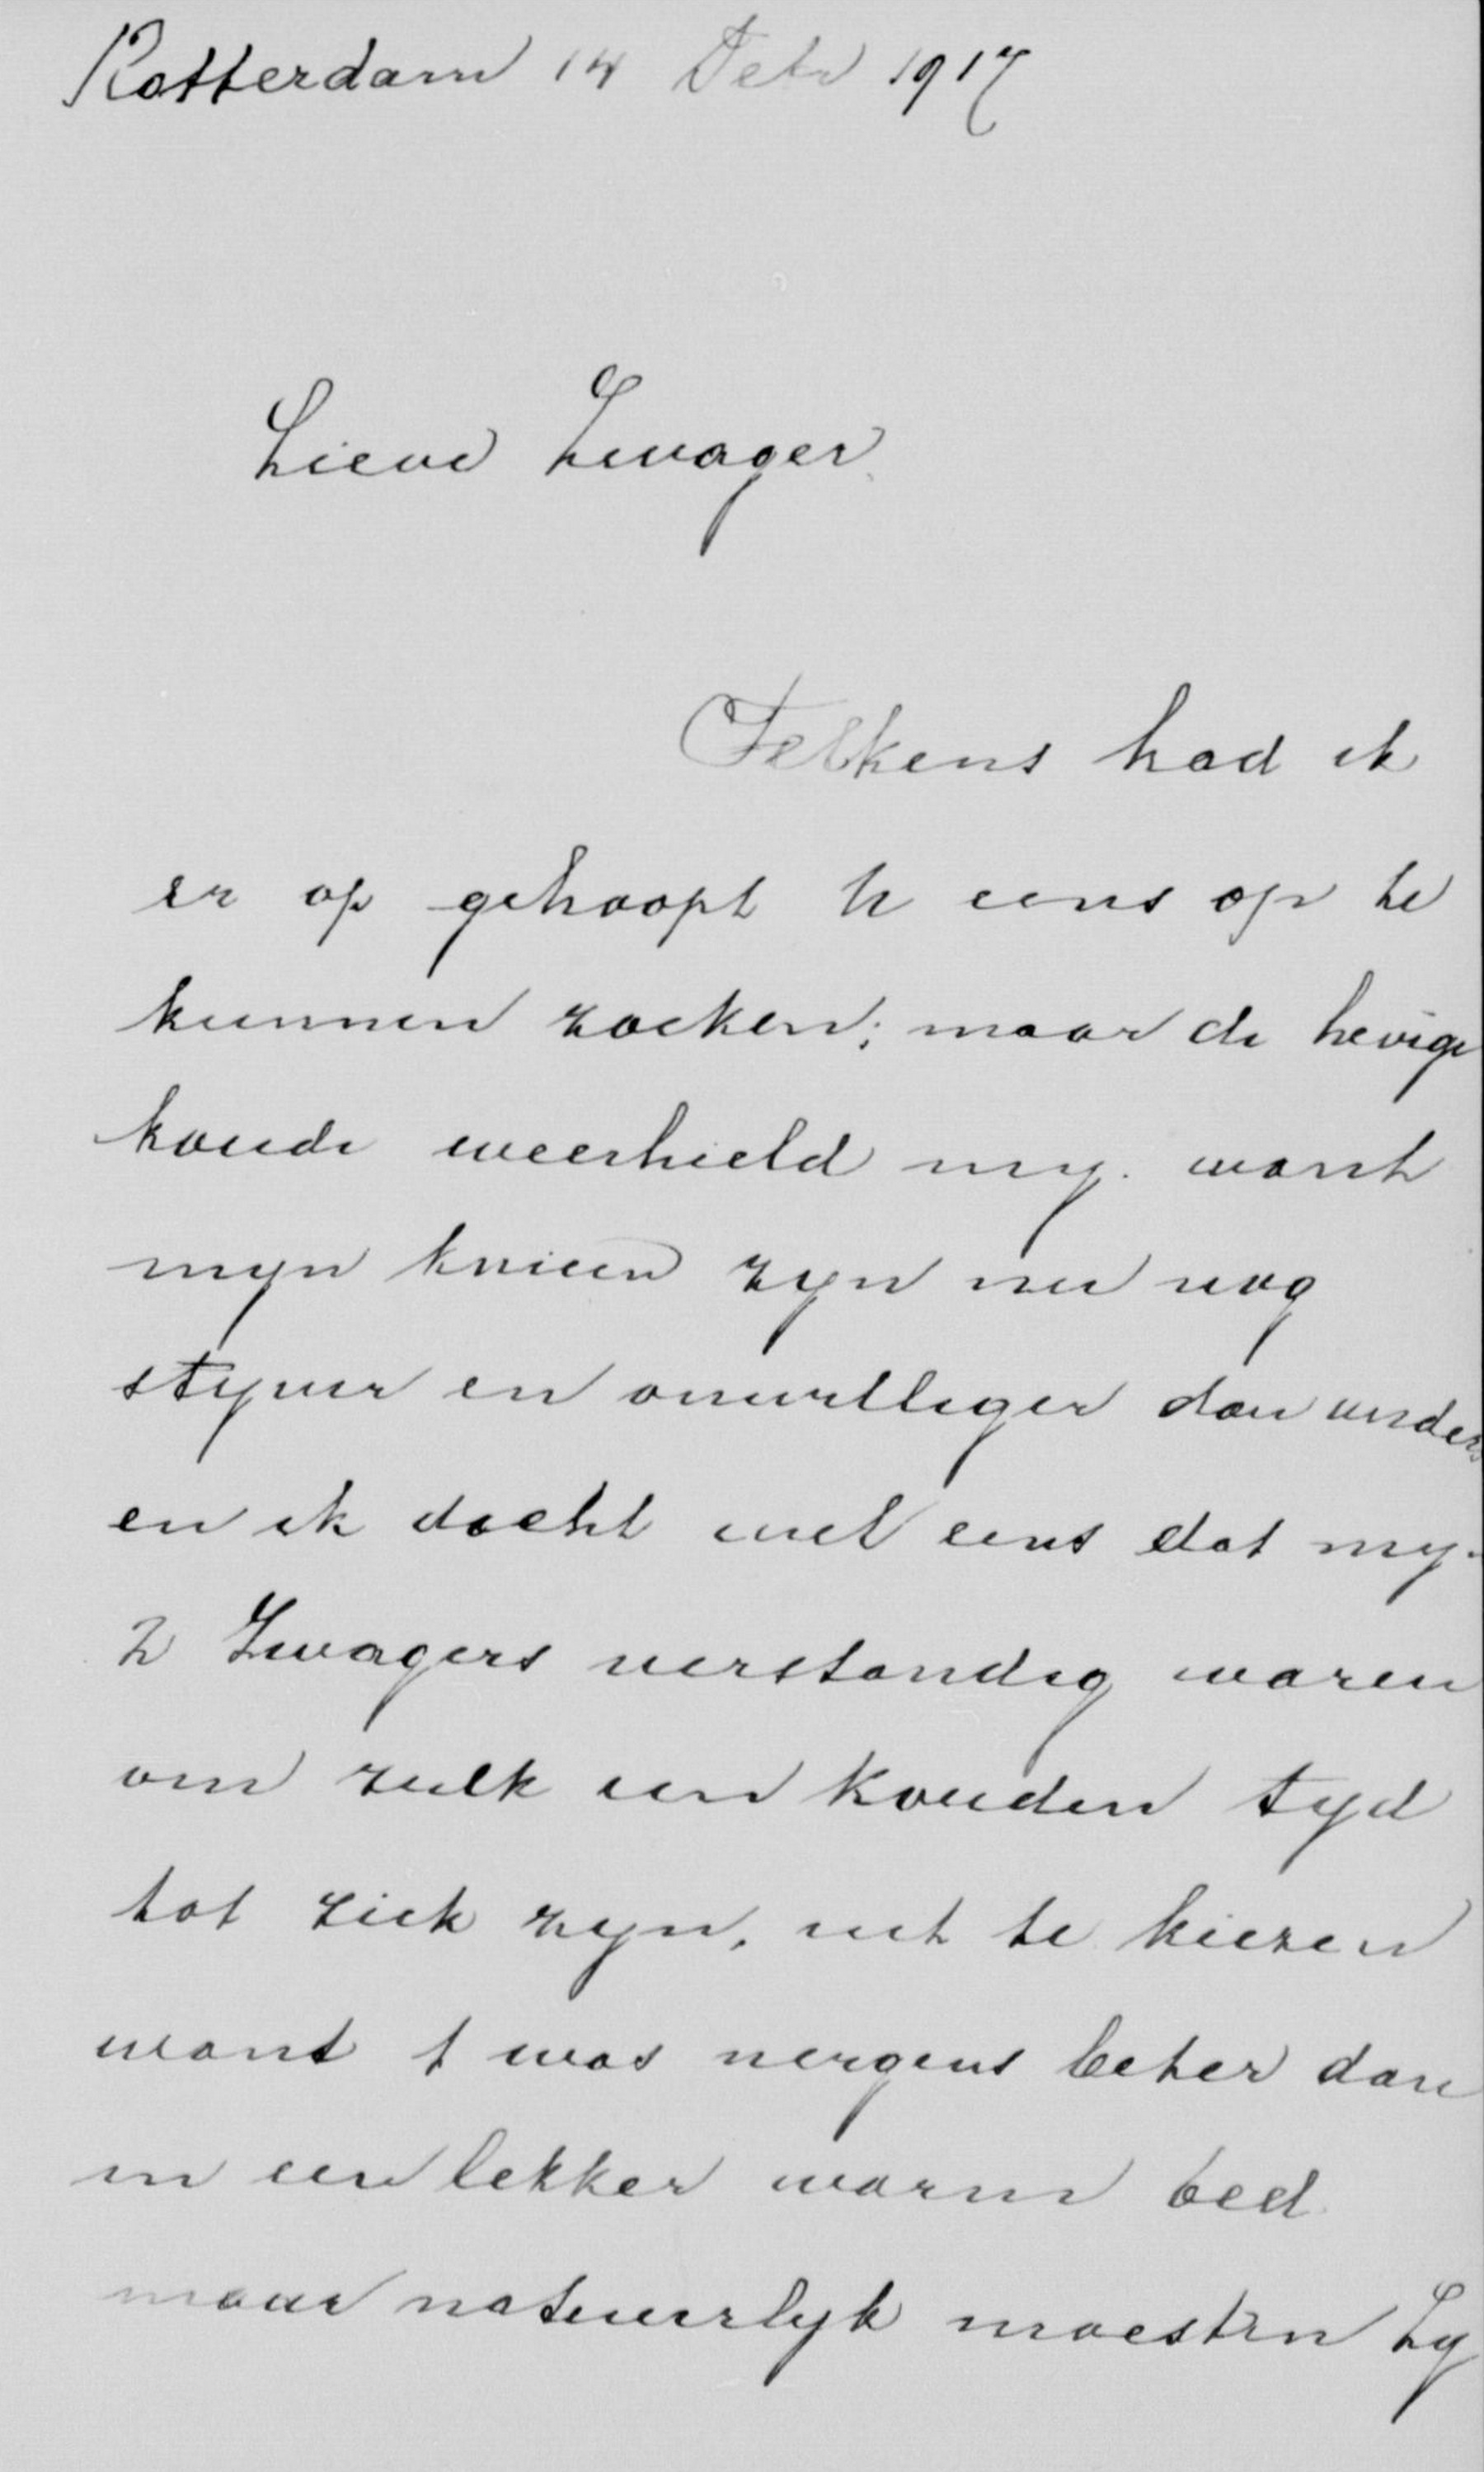 Rotterdam 14 Febr 1917
Lieve Zwager
Telkens had ik
er op gehoopt U eens op te
kunnen zoeken; maar de hevige
koude weerhield my. want
myn knieen zyn nu nog
styver en onwilliger dan anders
en ik dacht wel eens dat my.
2 Zwagers verstandig waren
om zulk een kouden tyd
tot ziek zyn, uit te kiezen
want t was nergens beter dan
in een lekker warm bed
maar natuurlyk moesten Zy